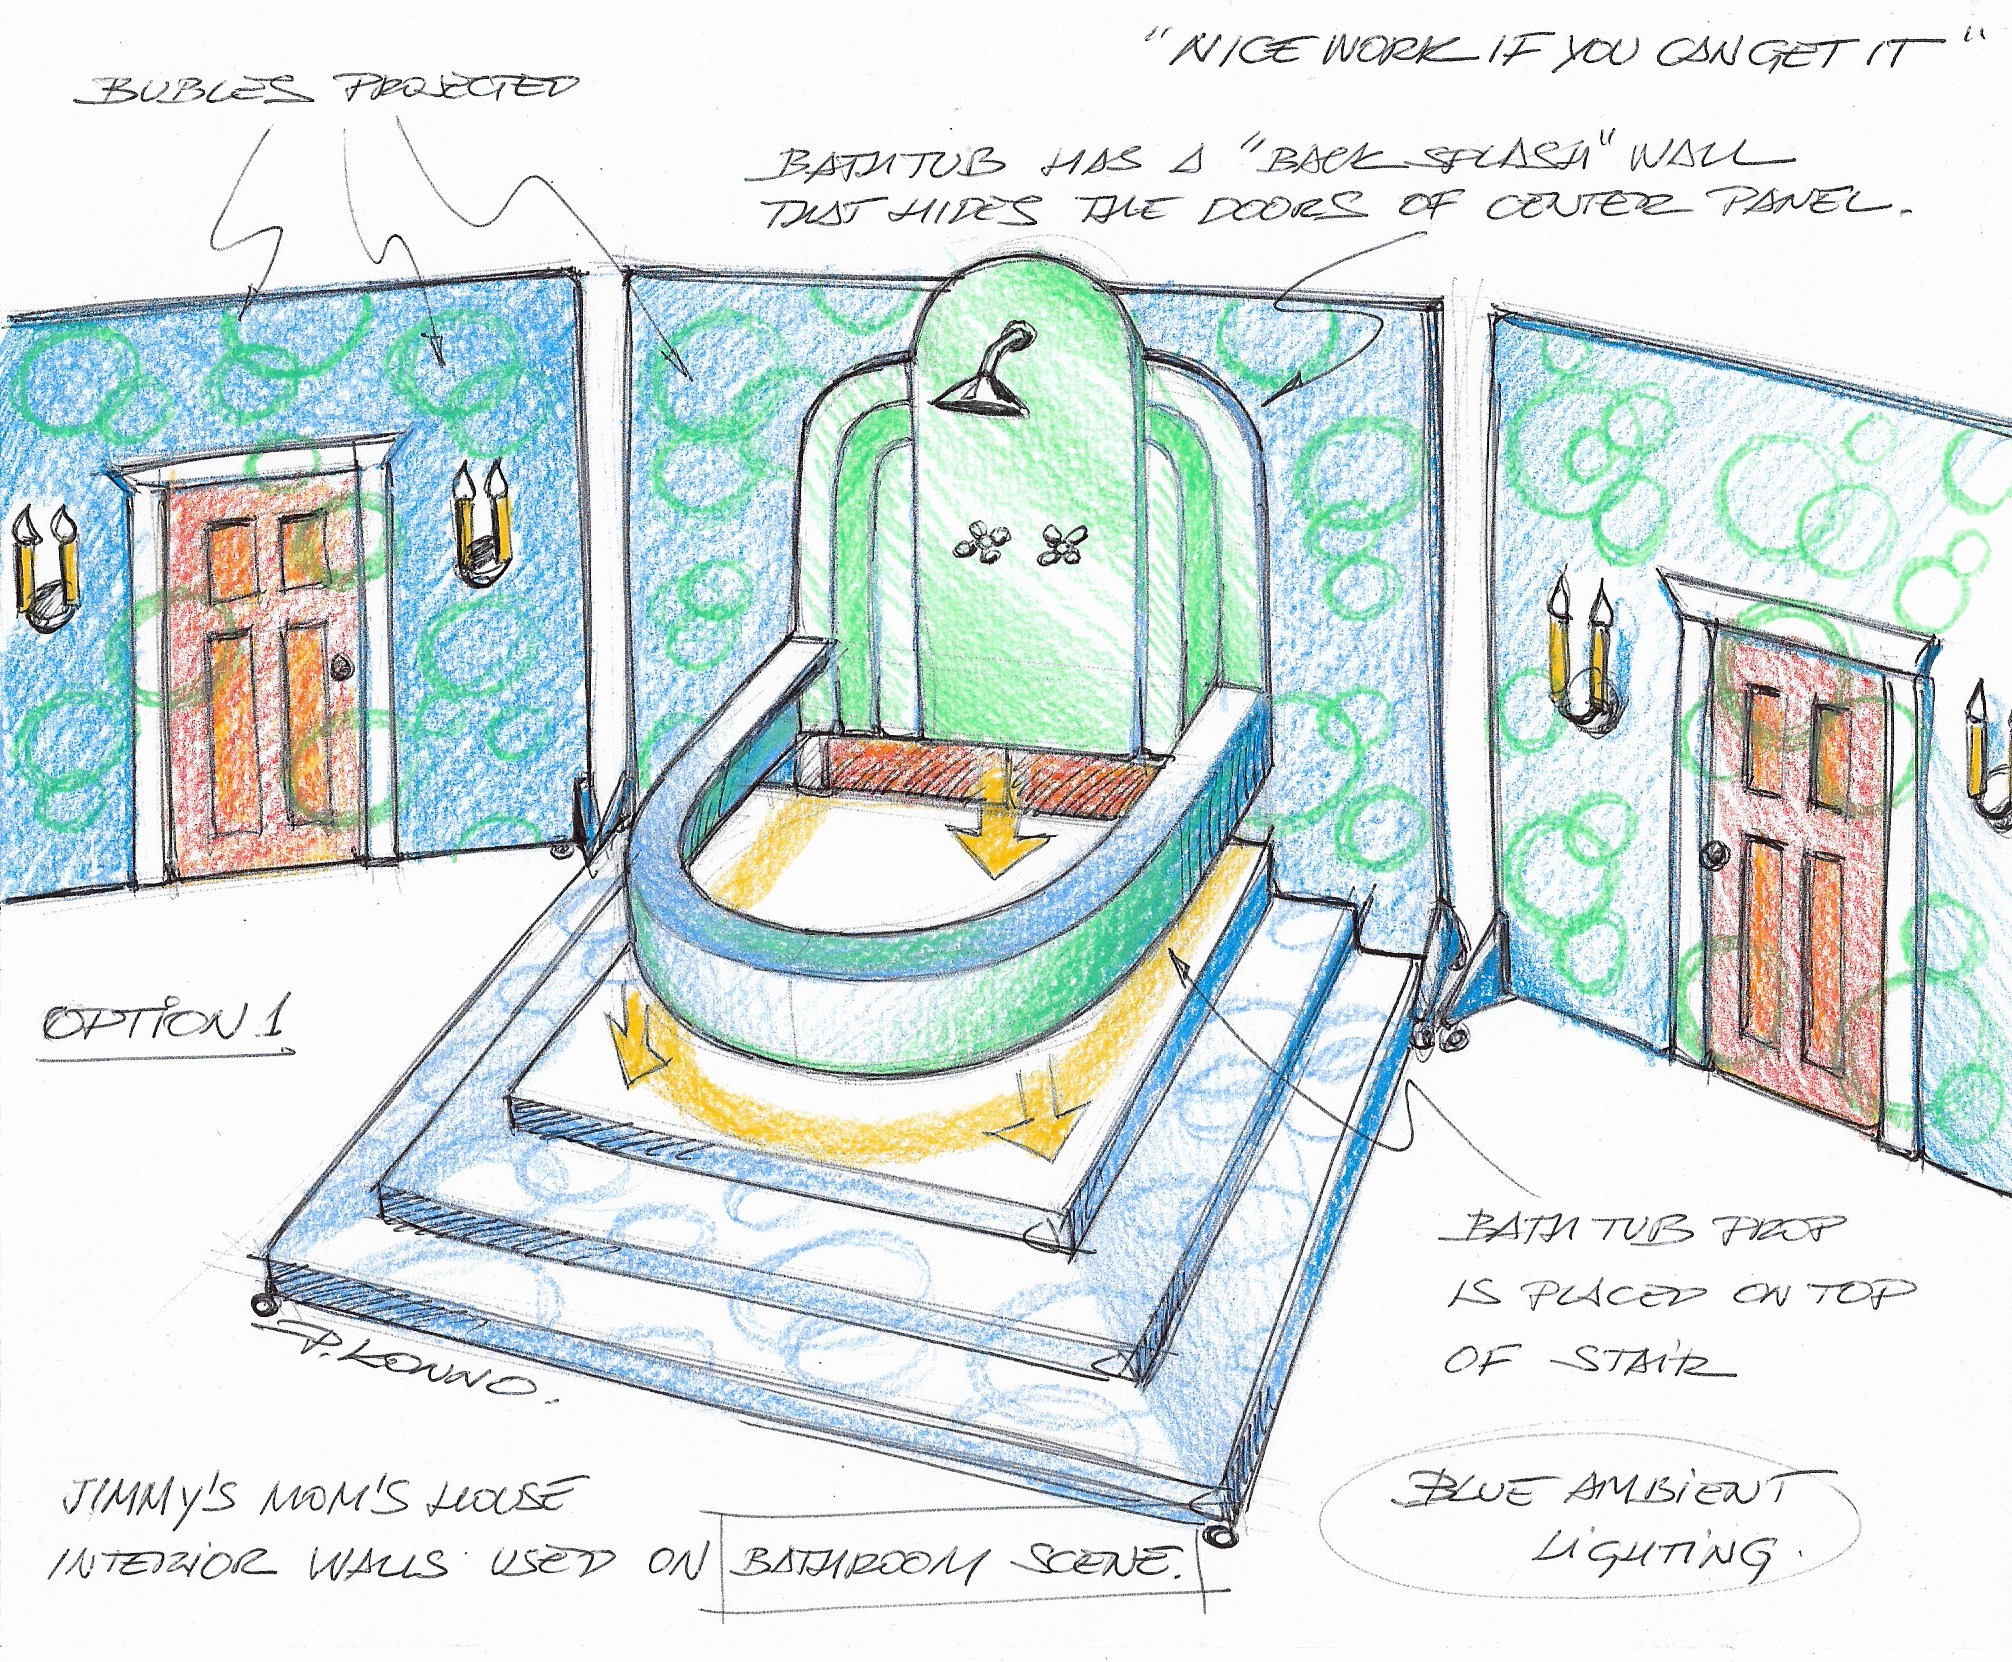 "NICE WORK IF YOU CAN GET IT"
BUBLES PROJECTED
BATHTUB HAS A "BACK SPLASH" WALL
THAT HIDES THE DOORS OF CENTER PANEL.
OPTION 1
BATHTUB PROP
IS PLACED ON TOP
OF STAIR
P. KONNO.
JIMMY'S MOM'S HOUSE
INTERIOR WALLS USED ON BATHROOM SCENE.
BLUE AMBIENT
LIGHTING.